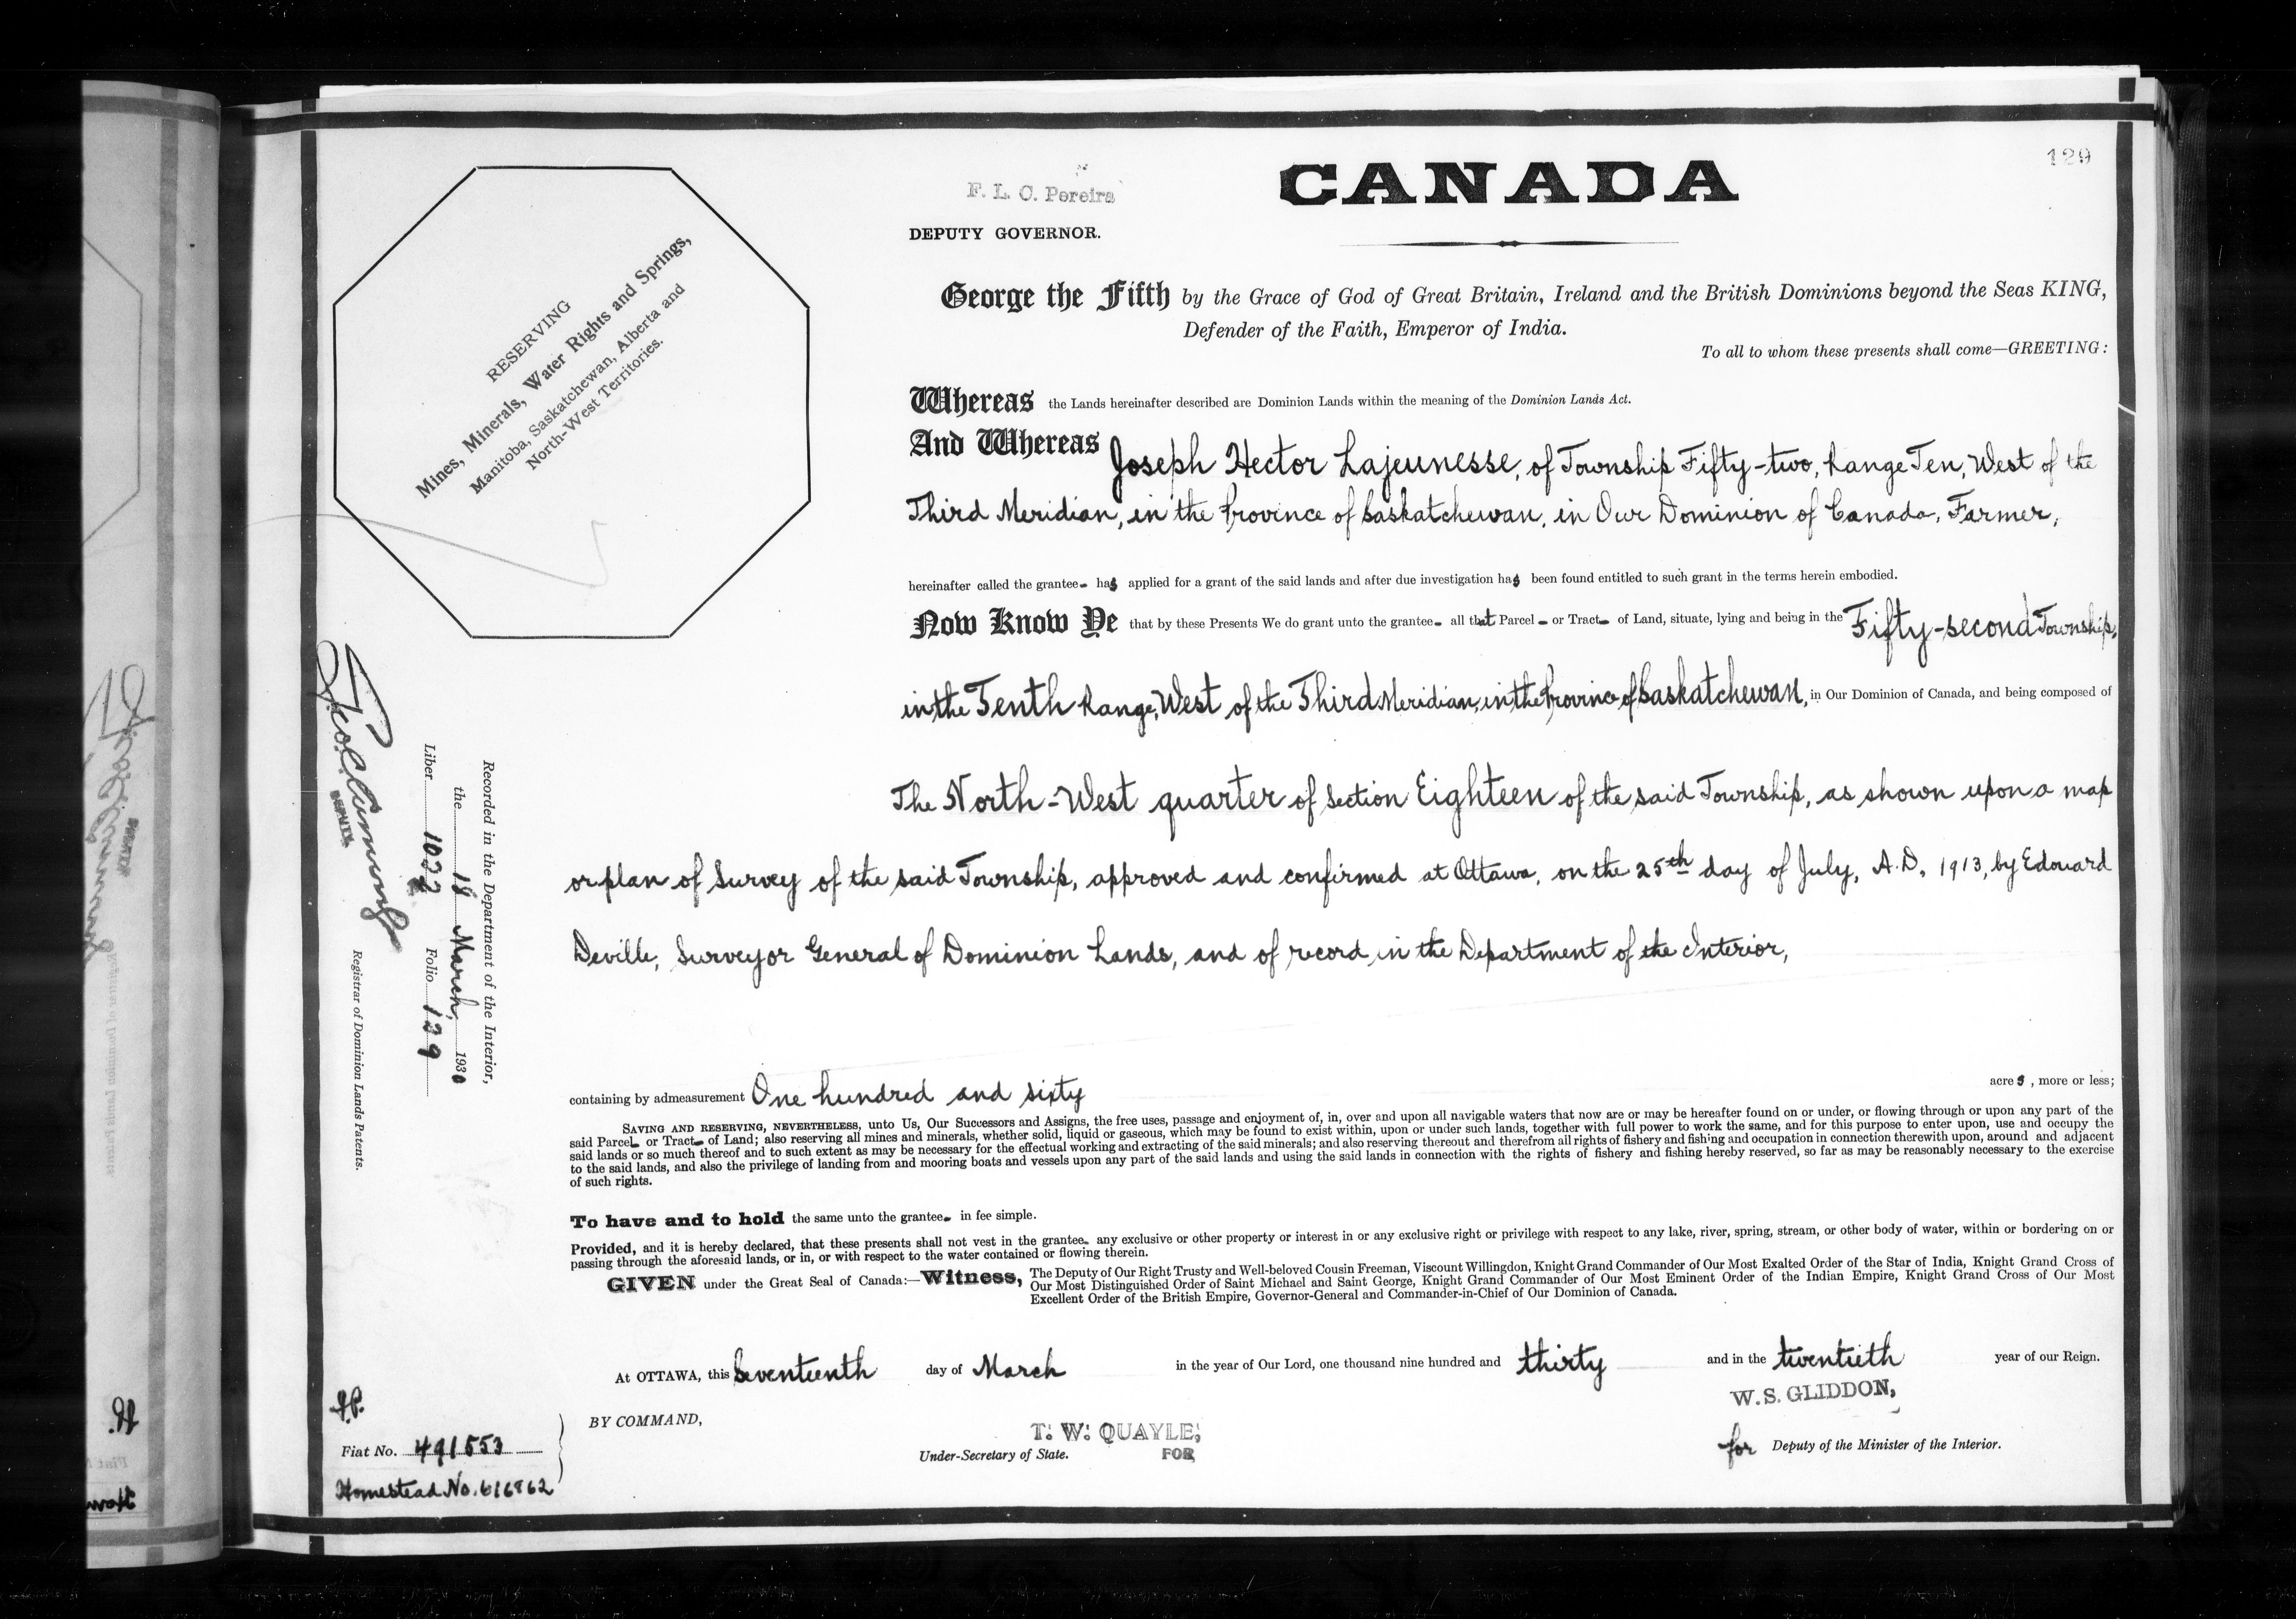 129
F. L. C. Pereira
CANADA
DEPUTY GOVERNOR.
RESERVING
Mines, Minerals, Water Rights and Springs,
Manitoba, Saskatchewan, Alberta and
North-West Territories.
George the Fifth by the Grace of God of Great Britain, Ireland and the British Dominions beyond the Seas KING,
Defender of the Faith, Emperor of India.
To all to whom these presents shall come—GREETING:
Whereas the Lands hereinafter described are Dominion Lands within the meaning of the Dominion Lands Act.
And Whereas Joseph Hector Lajeunesse, of Township Fifty-two, Range Ten, West of the
Third Meridian, in the Province of Saskatchewan, in Our Dominion of Canada, Farmer,
hereinafter called the grantee- has applied for a grant of the said lands and after due investigation has been found entitled to such grant in the terms herein embodied.
Now Know Ye that by these Presents We do grant unto the grantee- all that Parcel - or Tract- of Land, situate, lying and being in the Fifty-second Township,
in the Tenth Range, West of the Third Meridian, in the Province of Saskatchewan, in Our Dominion of Canada, and being composed of
The North-West quarter of Section Eighteen of the said Township, as shown upon a map
or plan of Survey of the said Township, approved and confirmed at Ottawa, on the 25th day of July, A.D. 1913, by Edouard
Deville, Surveyor General of Dominion Lands, and of record in the Department of the Interior,
containing by admeasurement One hundred and sixty acres, more or less;
SAVING AND RESERVING, NEVERTHELESS, unto Us, Our Successors and Assigns, the free uses, passage and enjoyment of, in, over and upon all navigable waters that now are or may be hereafter found on or under, or flowing through or upon any part of the
said Parcel- or Tract- of Land; also reserving all mines and minerals, whether solid, liquid or gaseous, which may be found to exist within, upon or under such lands, together with full power to work the same, and for this purpose to enter upon, use and occupy the
said lands or so much thereof and to such extent as may be necessary for the effectual working and extracting of the said minerals; and also reserving thereout and therefrom all rights of fishery and fishing and occupation in connection therewith upon, around and adjacent
to the said lands, and also the privilege of landing from and mooring boats and vessels upon any part of the said lands and using the said lands in connection with the rights of fishery and fishing hereby reserved, so far as may be reasonably necessary to the exercise
of such rights.
To have and to hold the same unto the grantee- in fee simple.
Provided, and it is hereby declared, that these presents shall not vest in the grantee- any exclusive or other property or interest in or any exclusive right or privilege with respect to any lake, river, spring, stream, or other body of water, within or bordering on or
passing through the aforesaid lands, or in, or with respect to the water contained or flowing therein.
GIVEN under the Great Seal of Canada:—Witness, The Deputy of Our Right Trusty and Well-beloved Cousin Freeman, Viscount Willingdon, Knight Grand Commander of Our Most Exalted Order of the Star of India, Knight Grand Cross of
Our Most Distinguished Order of Saint Michael and Saint George, Knight Grand Commander of Our Most Eminent Order of the Indian Empire, Knight Grand Cross of Our Most
Excellent Order of the British Empire, Governor-General and Commander-in-Chief of Our Dominion of Canada.
At OTTAWA, this Seventeenth day of March in the year of Our Lord, one thousand nine hundred and thirty and in the twentieth year of our Reign.
W. S. GLIDDON,
BY COMMAND,
T. W. QUAYLE,
Under-Secretary of State. FOR
for Deputy of the Minister of the Interior.
Recorded in the Department of the Interior,
the 18 March, 1930
Liber 1022 Folio 129
DEPUTY
Registrar of Dominion Lands Patents.
Fiat No. 491553
Homestead No. 616862